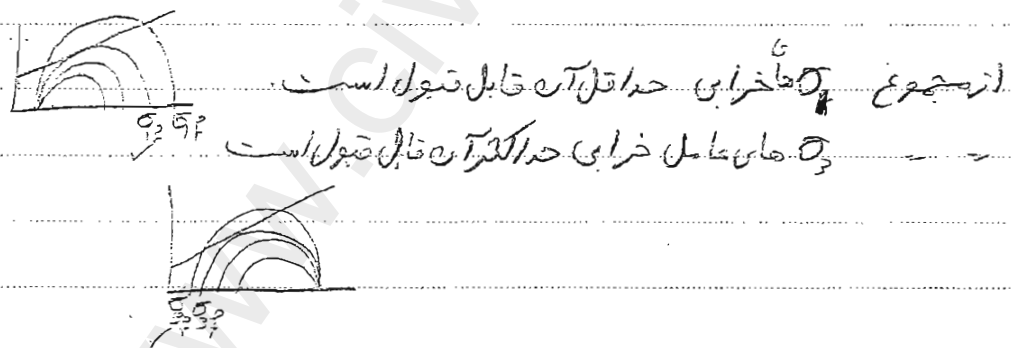 از مجموع σ₁ ها تا خرابی حداقل آن قابل قبول است.
" " σ₃ های عامل خرابی حداکثر آن قابل قبول است
www.civ